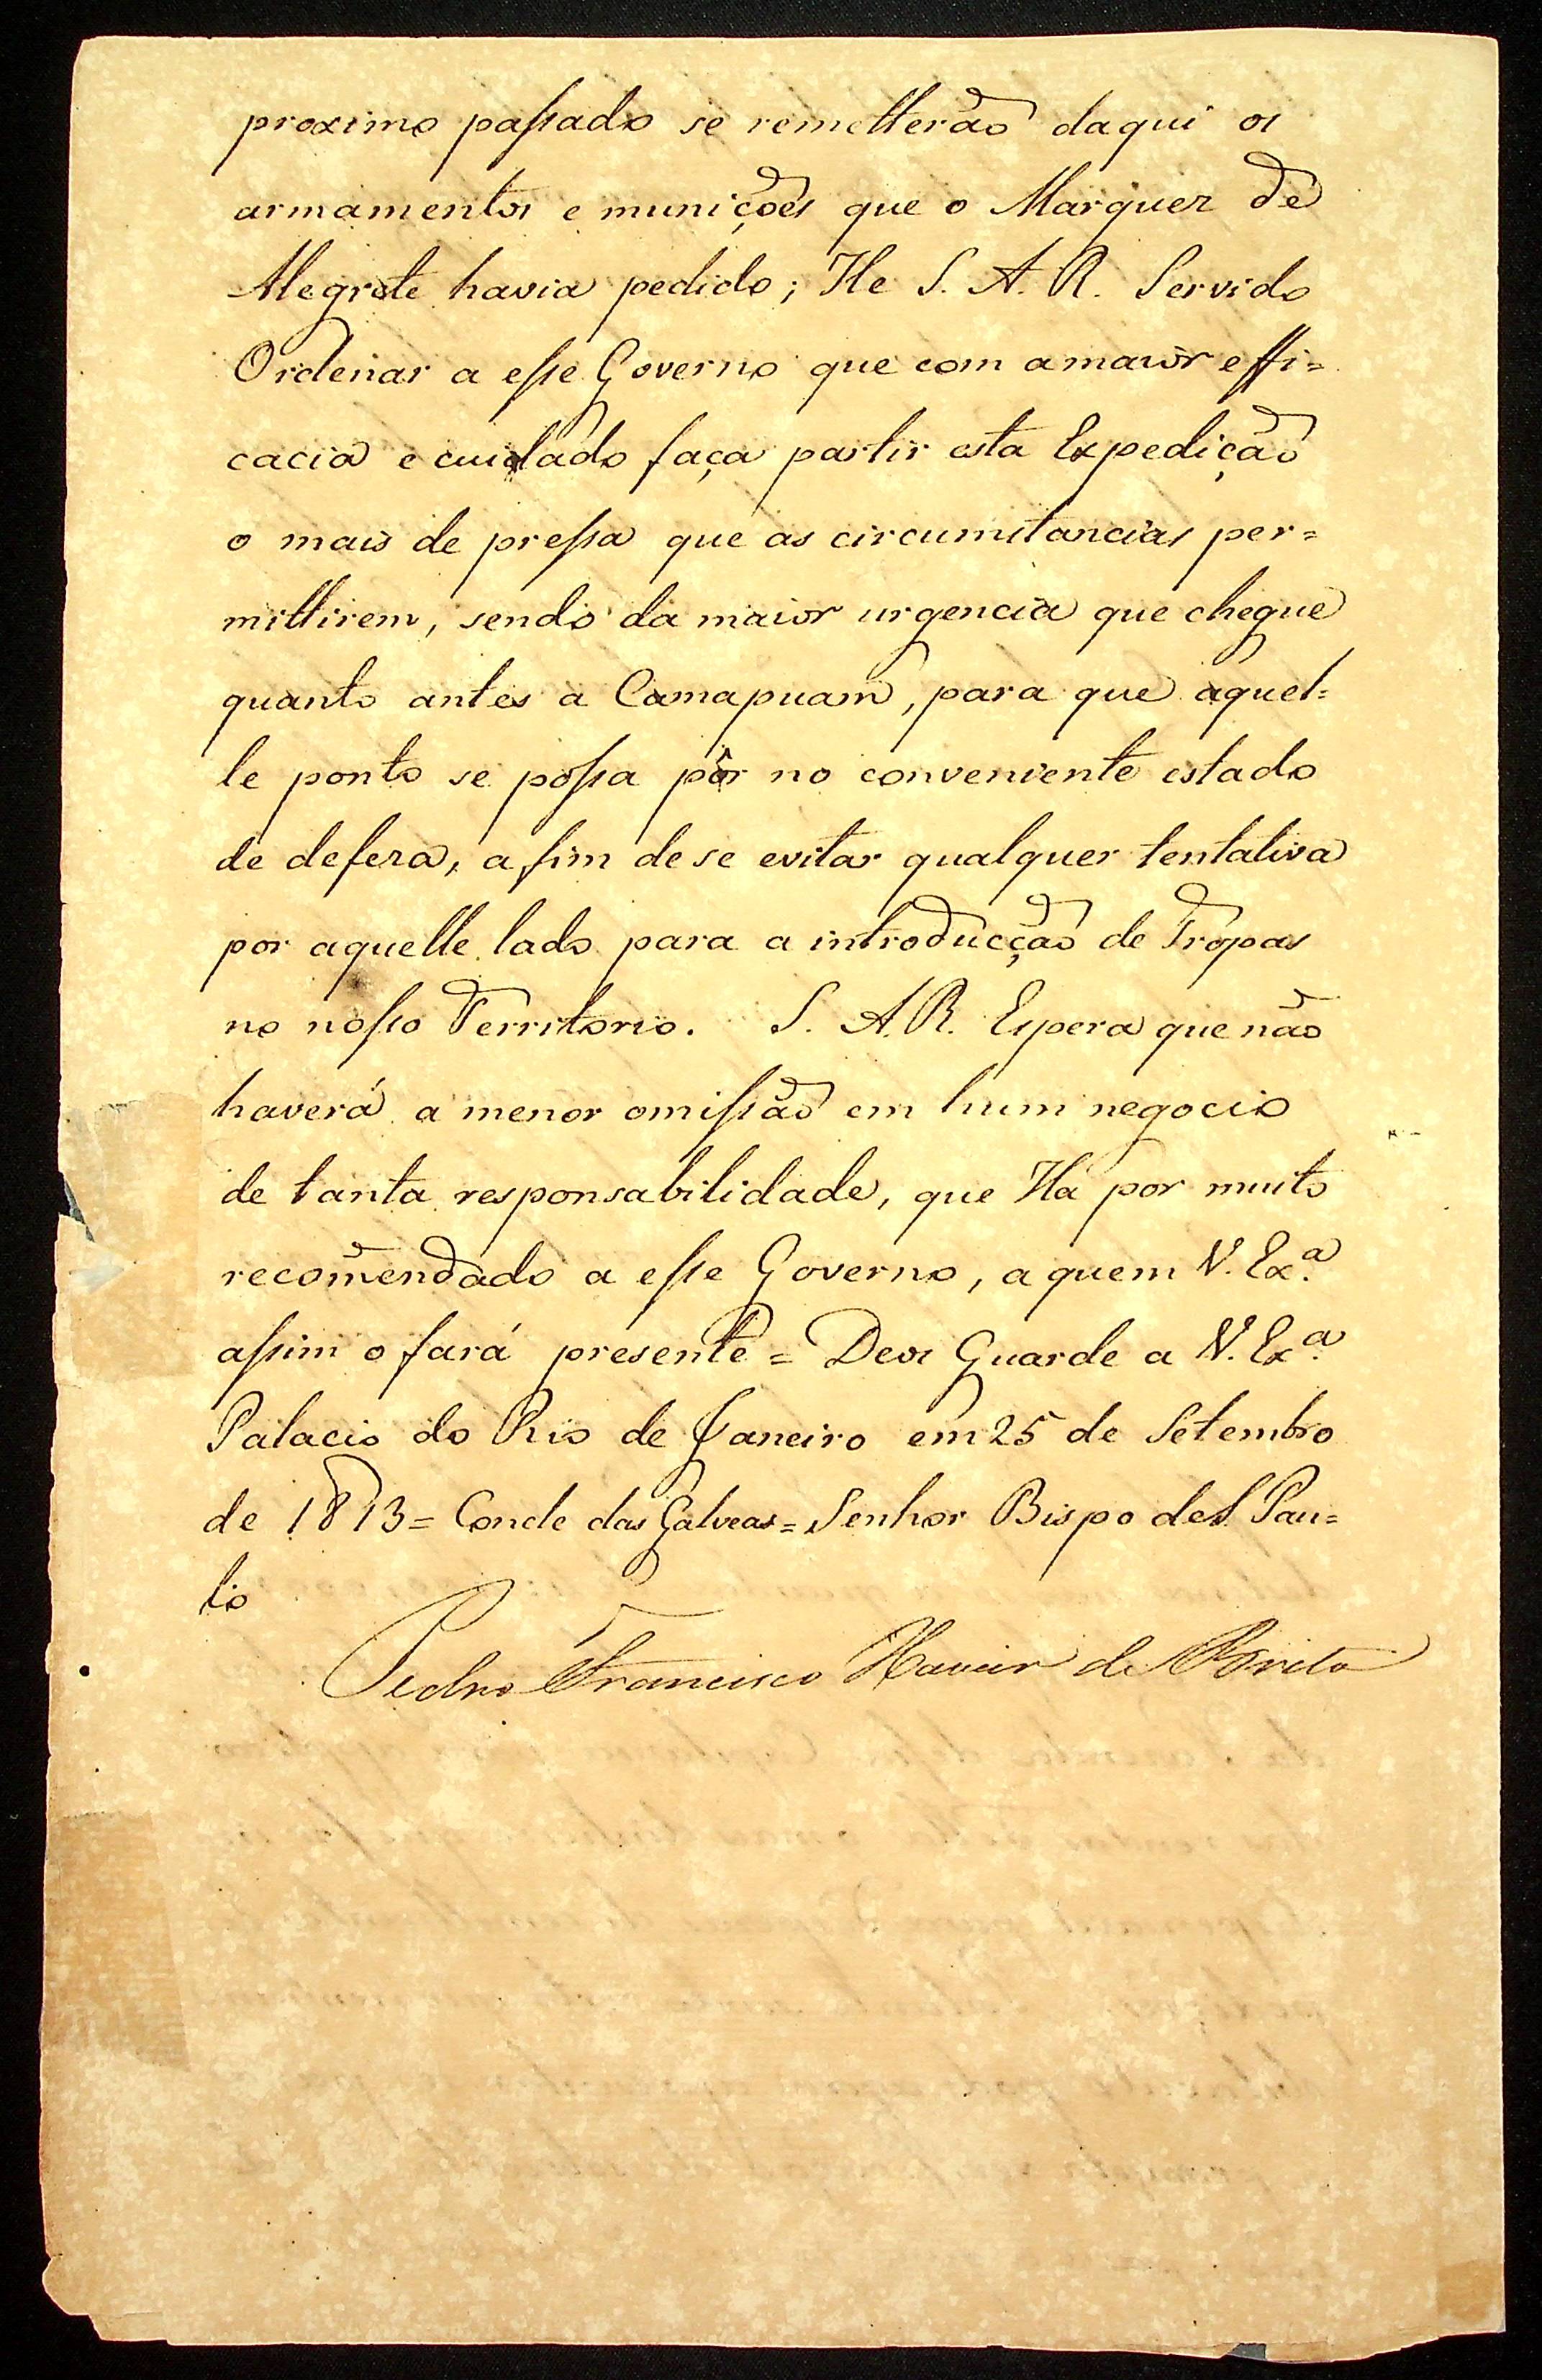 proximo passado se remetterão daqui os
armamentos e munições que o Marquez de
Alegrete havia pedido; He S. A. R. Servido
Ordenar a esse Governo que com a maior effi=
cacia e cuidado faça partir esta Expedição
o mais de pressa que as circumstancias per=
mittirem, sendo da maior urgencia que chegue
quanto antes a Camapuam, para que aquel=
le ponto se possa pôr no conveniente estado
de defeza, a fim de se evitar qualquer tentativa
por aquelle lado para a introducção de Tropas
no nosso Territorio. S. A. R. Espera que não
haverá a menor omissão em hum negocio
de tanta responsabilidade, que Ha por muito
recom̃endado a esse Governo, a quem V. Ex.ª
assim o fará presente = Deos Guarde a V. Ex.ª
Palacio do Rio de Janeiro em 25 de Setembro
de 1813 = Conde das Galveas = Senhor Bispo de S. Pau=
lo
Pedro Francisco Xavier de Brito